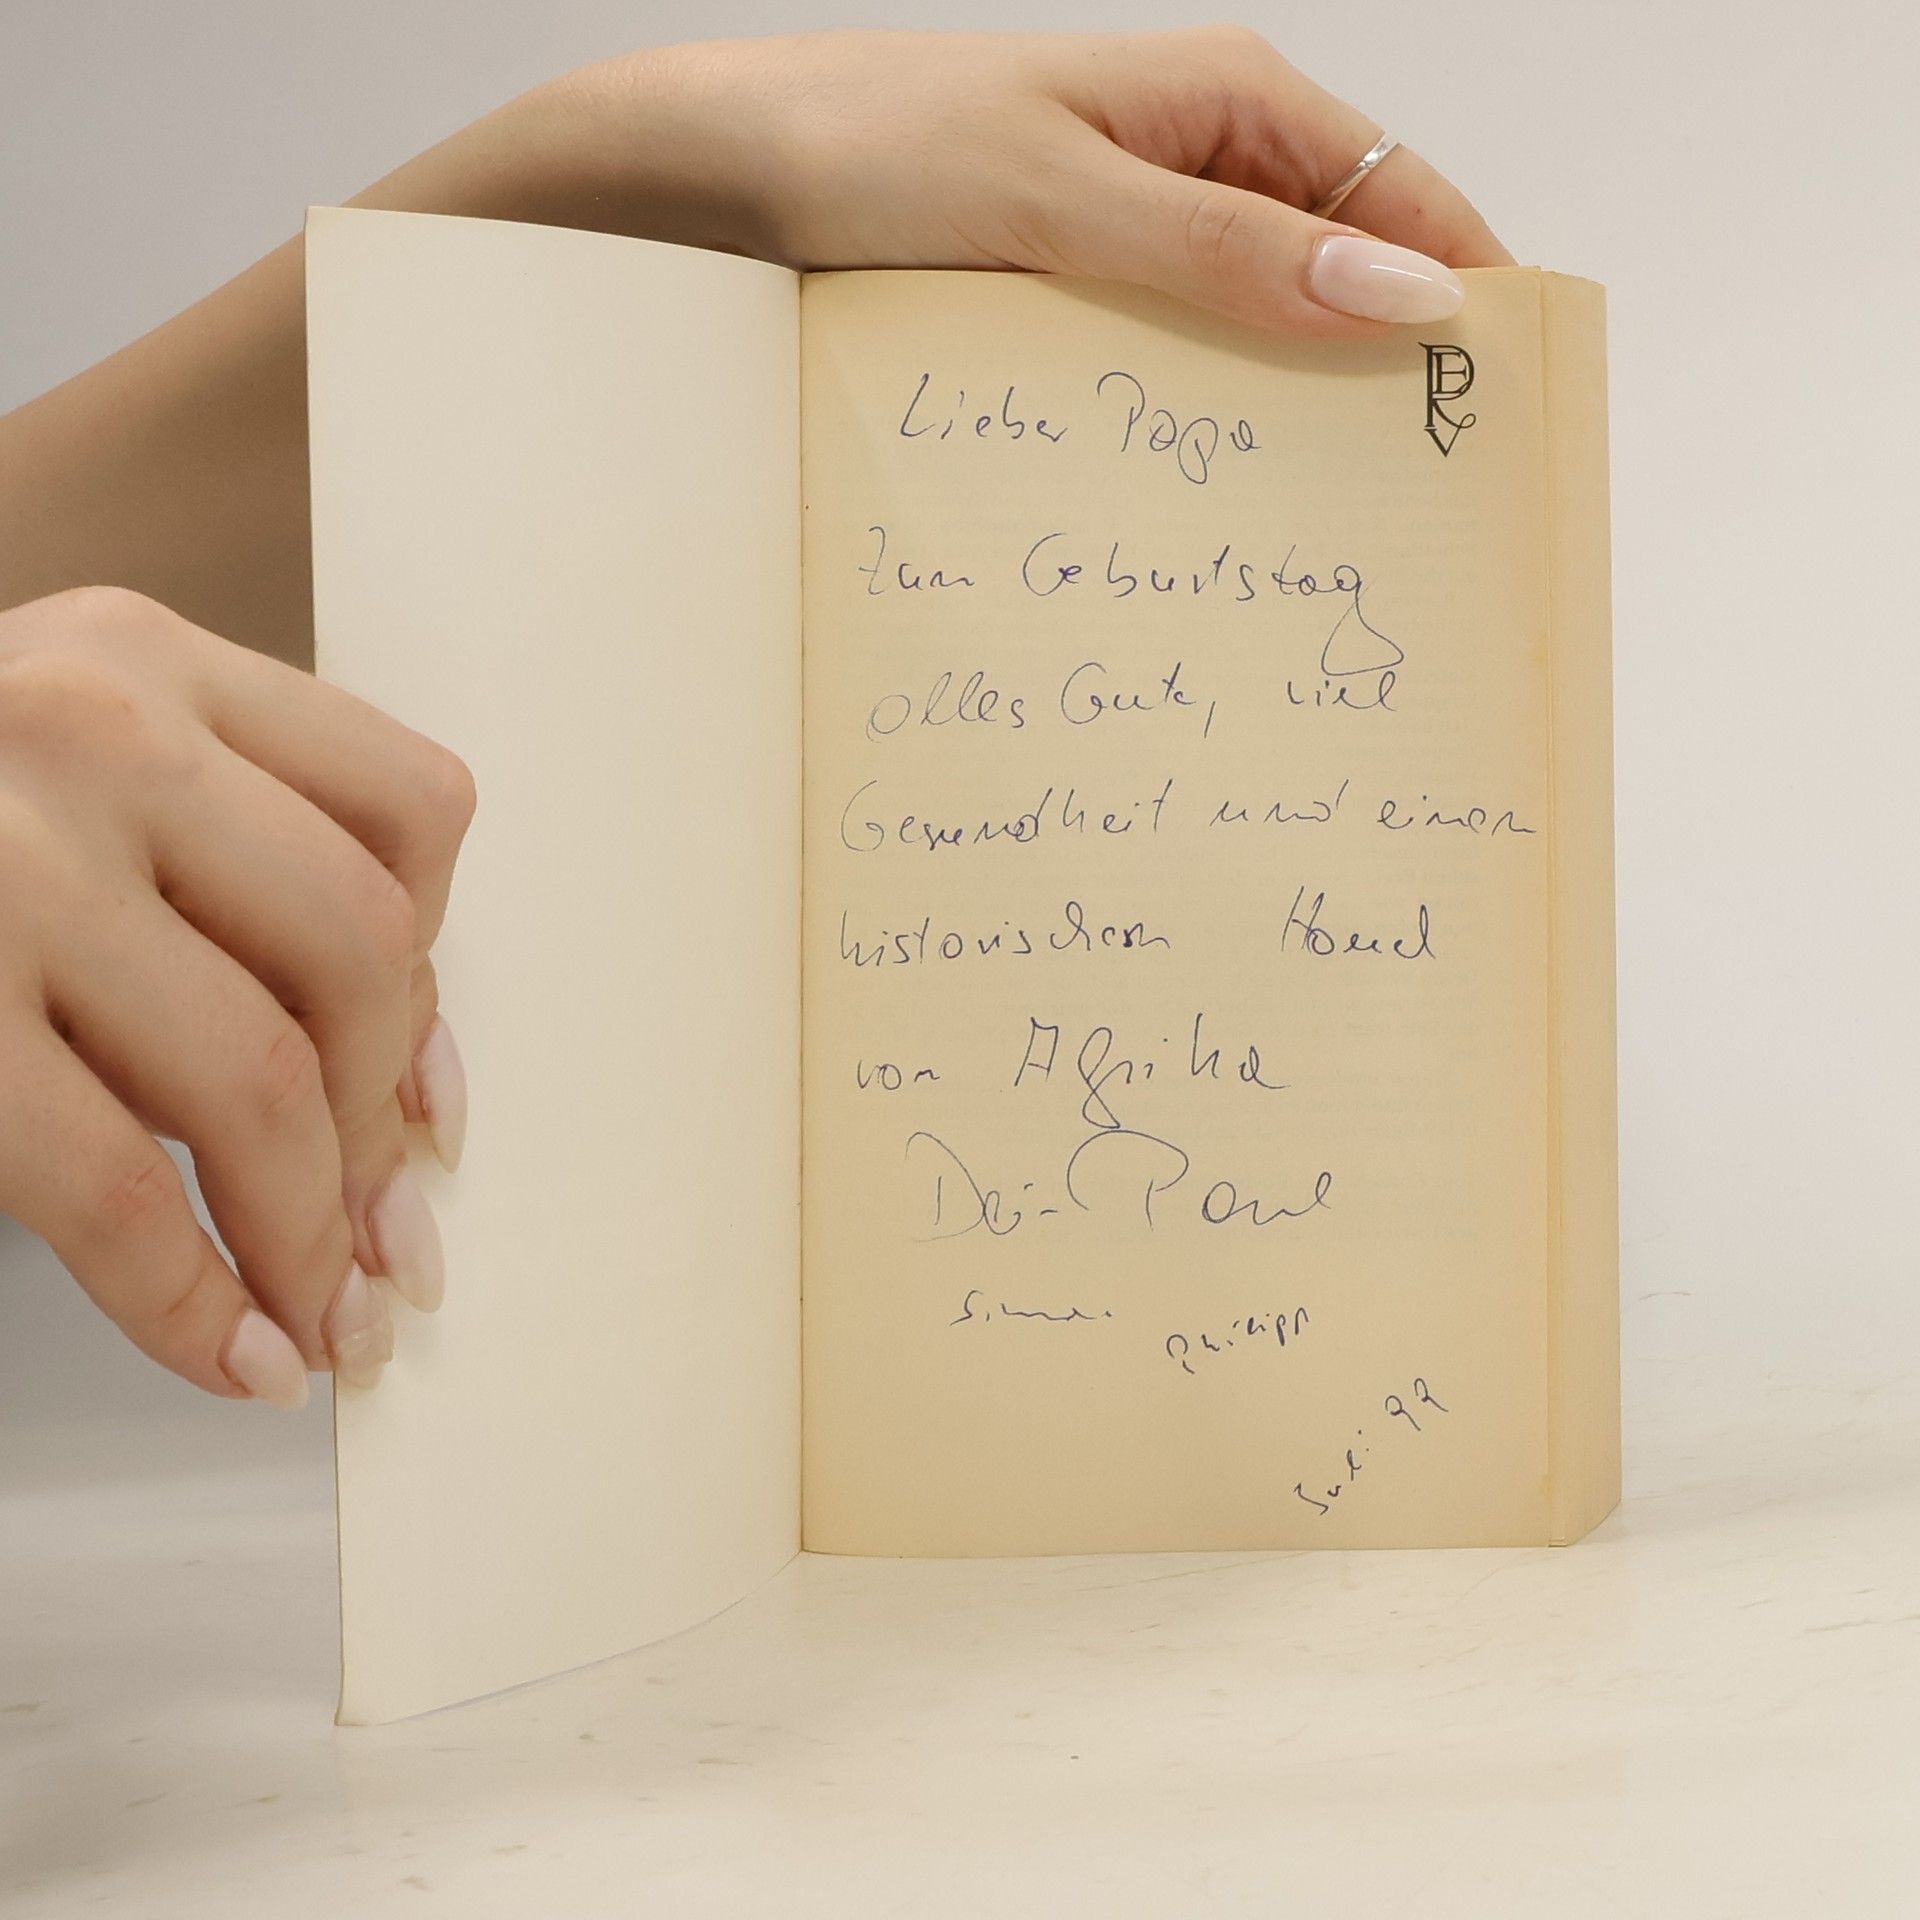 Lieber Papa
Zum Geburtstag
alles Gute, viel
Gesundheit und einen
historischen Hauch
von Afrika
Dein Paul
Simon
Philipp
Juli 99